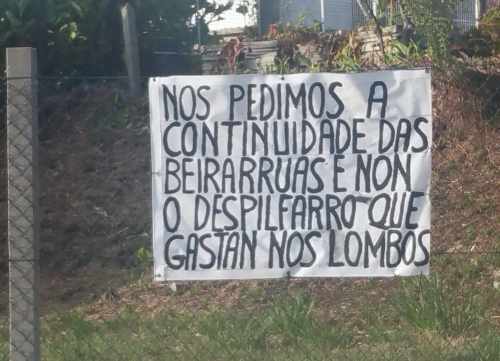 NOS PEDIMOS A
CONTINUIDADE DAS
BEIRARRUAS E NON
O DESPILFARRO QUE
GASTAN NOS LOMBOS